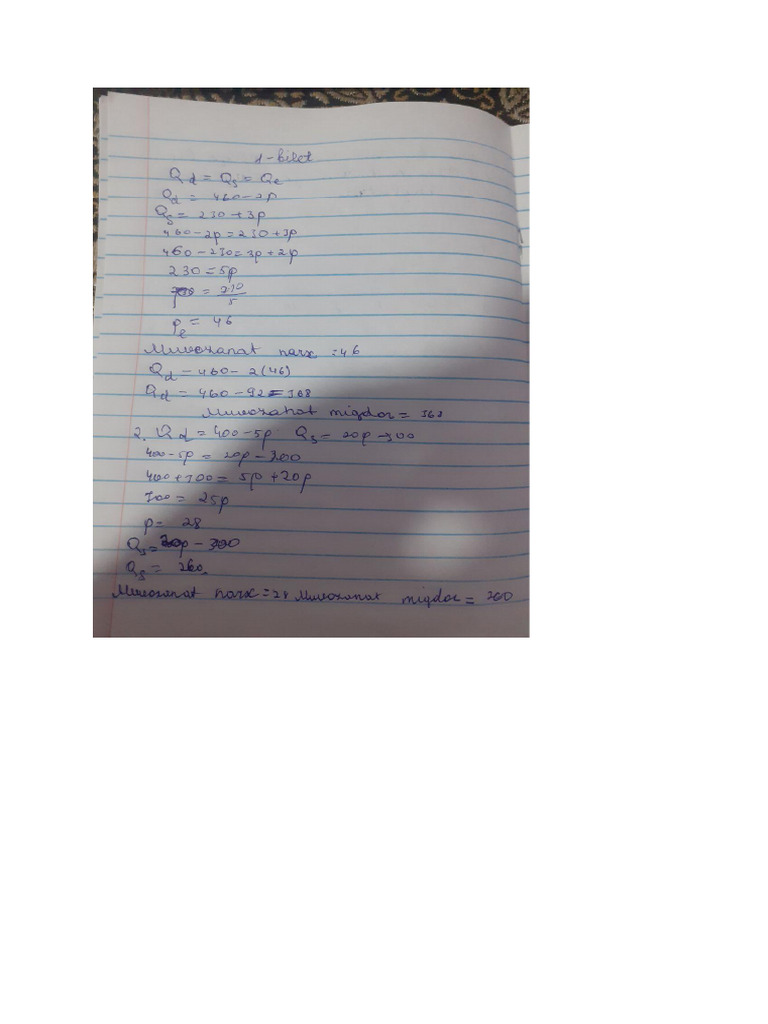 1-bilet
Qd = Qs = Qe
Qd = 460-2p
Qs = 230+3p
460-2p=230+3p
460-230=3p+2p
230=5p
= 230/5
Pe = 46
Muvozanat narx =46
Qd - 460- 2(46)
Qd = 460-92=368
Muvozanat miqdor = 368
2. Qd = 400-5p Qs = 20p-300
400-5p = 20p-300
400+300= 5p+20p
700= 25p
p= 28
Qs= 20p - 300
Qs = 260.
Muvozanat narx=28 Muvozanat miqdor = 260